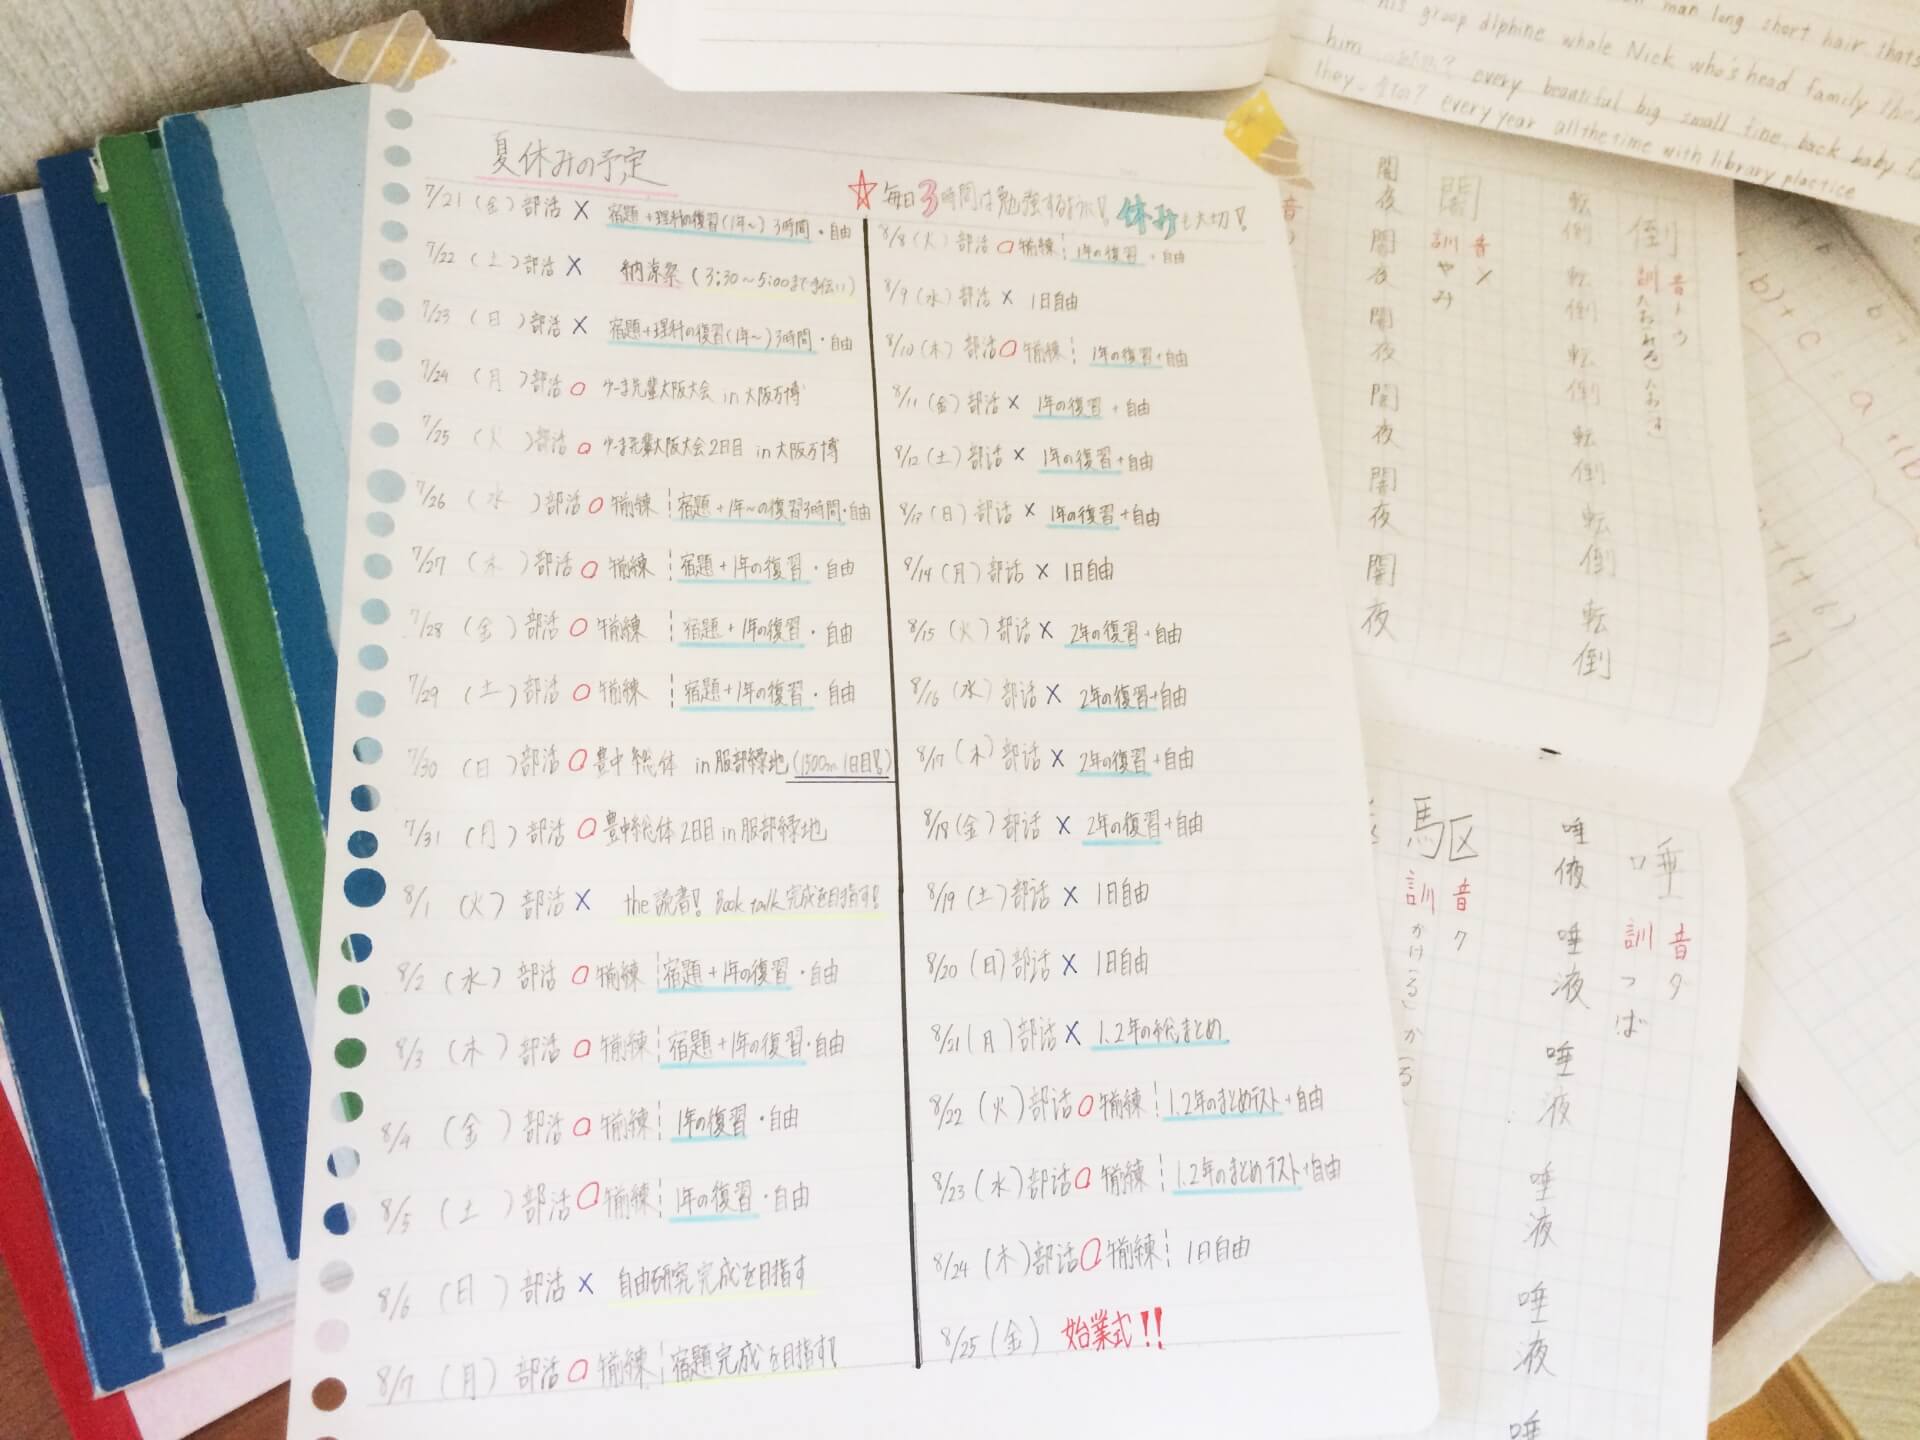 夏休みの予定
☆毎日3時間は勉強するように! 休みも大切!
7/21 (金) 部活 × 宿題+理科の復習(1年〜) 3時間・自由
7/22 (土) 部活 × 納涼祭 (3:30〜5:00まで手伝い)
7/23 (日) 部活 × 宿題+理科の復習(1年〜) 3時間・自由
7/24 (月) 部活 ○ ゆーま先輩大阪大会 in 大阪万博
7/25 (火) 部活 ○ ゆーま先輩大阪大会2日目 in 大阪万博
7/26 (水) 部活 ○ 午前練 宿題+1年〜の復習3時間・自由
7/27 (木) 部活 ○ 午前練 宿題+1年の復習・自由
7/28 (金) 部活 ○ 午前練 宿題+1年の復習・自由
7/29 (土) 部活 ○ 午前練 宿題+1年の復習・自由
7/30 (日) 部活 ○ 豊中総体 in 服部緑地 (1500m 1日目!)
7/31 (月) 部活 ○ 豊中総体2日目 in 服部緑地
8/1 (火) 部活 × the 読書! Book talk 完成を目指す!
8/2 (水) 部活 ○ 午前練 宿題+1年の復習・自由
8/3 (木) 部活 ○ 午前練 宿題+1年の復習・自由
8/4 (金) 部活 ○ 午前練 1年の復習・自由
8/5 (土) 部活 ○ 午前練 1年の復習・自由
8/6 (日) 部活 × 自由研究完成を目指す
8/7 (月) 部活 ○ 午前練 宿題完成を目指す!
8/8 (火) 部活 ○ 午前練 1年の復習+自由
8/9 (水) 部活 × 1日自由
8/10 (木) 部活 ○ 午前練 1年の復習+自由
8/11 (金) 部活 × 1年の復習+自由
8/12 (土) 部活 × 1年の復習+自由
8/13 (日) 部活 × 1年の復習+自由
8/14 (月) 部活 × 1日自由
8/15 (火) 部活 × 2年の復習+自由
8/16 (水) 部活 × 2年の復習+自由
8/17 (木) 部活 × 2年の復習+自由
8/18 (金) 部活 × 2年の復習+自由
8/19 (土) 部活 × 1日自由
8/20 (日) 部活 × 1日自由
8/21 (月) 部活 × 1.2年の総まとめ
8/22 (火) 部活 ○ 午前練 1.2年のまとめテスト+自由
8/23 (水) 部活 ○ 午前練 1.2年のまとめテスト+自由
8/24 (木) 部活 ○ 午前練 1日自由
8/25 (金) 始業式!!
man long short hair thats
his group dlphine whale Nick who's head family
him every beautiful big small fine back baby
they every year all the time with library plactice
倒
音 トウ
訓 たおれる たおす
転倒 転倒 転倒 転倒 転倒 転倒
闇
音 ×
訓 やみ
闇夜 闇夜 闇夜 闇夜 闇夜 闇夜
唾
音 タ
訓 つば
唾液 唾液 唾液 唾液 唾液 唾
駆
音 ク
訓 かけ(る) か(る)